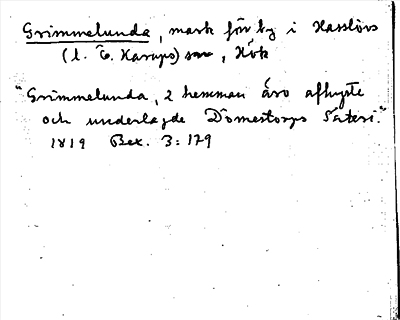 Grimmelunda, mark förr by i Hasslövs
(l. Ö. Karups) sn, Hök
"Grimmelunda, 2 hemman äro afhyste
och underlagde Dömestorps Säteri."
1819 Bex. 3:179